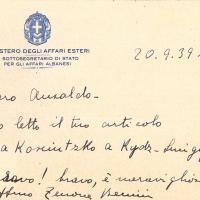 STERO DEGLI AFFARI ESTERI
SOTTOSEGRETARIO DI STATO
PER GLI AFFARI ALBANESI
20.9.39
Ansaldo -
letto il tuo articolo
a
bravo, è meraviglios
Zenone Benini